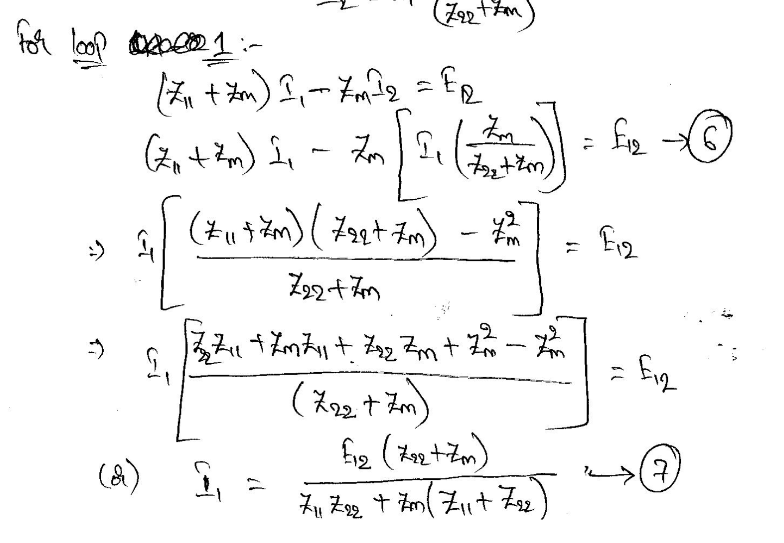 (Z22+Zm)
for loop 1 :-
(Z11 + Zm) I1 - Zm I2 = E12
(Z11 + Zm) I1 - Zm [ I1 ( Zm / (Z22+Zm) ) ] = E12 → (6)
=) I1 [ ( (Z11 + Zm) (Z22 + Zm) - Zm² ) / (Z22 + Zm) ] = E12
=) I1 [ ( Z22 Z11 + Zm Z11 + Z22 Zm + Zm² - Zm² ) / (Z22 + Zm) ] = E12
(or) I1 = E12 (Z22+Zm) / ( Z11 Z22 + Zm (Z11 + Z22) ) → (7)